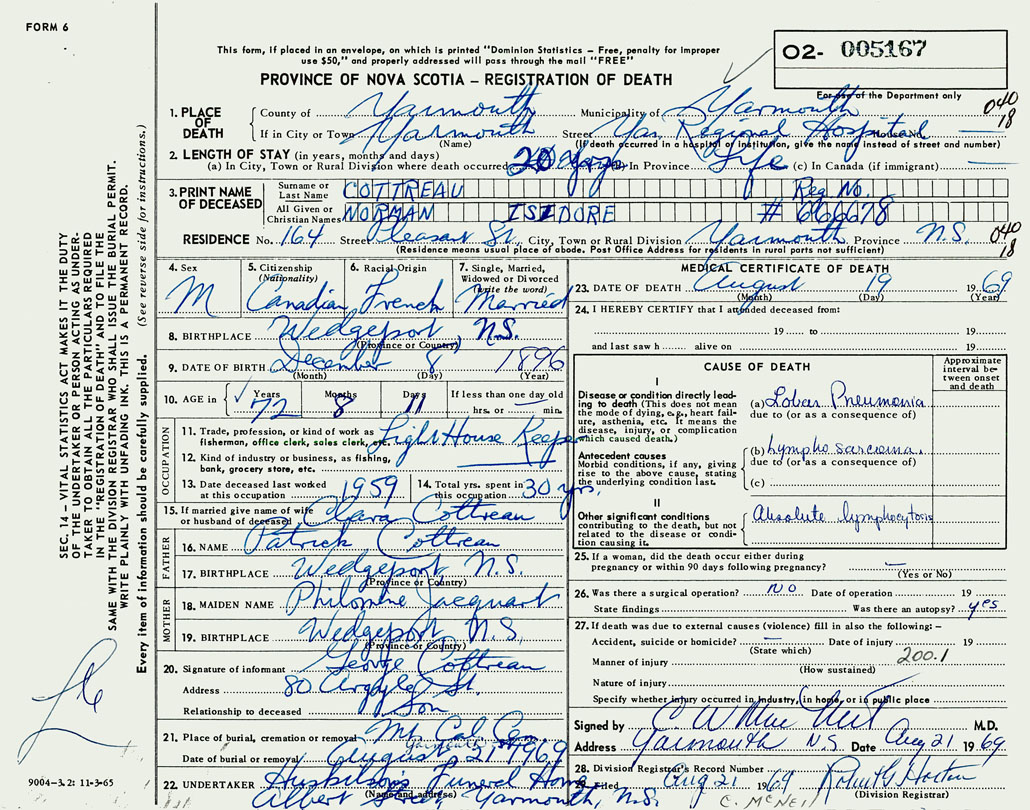 FORM 6
This form, if placed in an envelope, on which is printed "Dominion Statistics – Free, penalty for improper
use $50," and properly addressed will pass through the mail "FREE"
PROVINCE OF NOVA SCOTIA – REGISTRATION OF DEATH
O2- 005167
For use of the Department only
040
18
1. PLACE OF DEATH
County of Yarmouth Municipality of Yarmouth
If in City or Town Yarmouth Street Yar. Regional Hospital House No.
(Name) (If death occurred in a hospital or institution, give the name instead of street and number)
2. LENGTH OF STAY (in years, months and days)
(a) In City, Town or Rural Division where death occurred 20 days (b) In Province Life (c) In Canada (if immigrant)
3. PRINT NAME OF DECEASED
Surname or Last Name COTTREAU Reg. No.
All Given or Christian Names NORMAN ISIDORE # 666678
RESIDENCE No. 164 Street Pleasant St. City, Town or Rural Division Yarmouth Province N.S.
(Residence means usual place of abode. Post Office Address for residents in rural parts not sufficient)
040
18
4. Sex M
5. Citizenship (Nationality) Canadian
6. Racial Origin French
7. Single, Married, Widowed or Divorced (write the word) Married
8. BIRTHPLACE Wedgeport N.S.
(Province or Country)
9. DATE OF BIRTH December 8 1896
(Month) (Day) (Year)
10. AGE in Years 72 Months 8 Days 11 If less than one day old
hrs. or min.
OCCUPATION
11. Trade, profession, or kind of work as fisherman, office clerk, sales clerk, etc. Light House Keeper
12. Kind of industry or business, as fishing, bank, grocery store, etc.
13. Date deceased last worked at this occupation 1959
14. Total yrs. spent in this occupation 30 yrs.
15. If married give name of wife or husband of deceased Clara Cottreau
FATHER
16. NAME Patrick Cottreau
17. BIRTHPLACE Wedgeport N.S.
(Province or Country)
MOTHER
18. MAIDEN NAME Philomène Jacquart
19. BIRTHPLACE Wedgeport N.S.
(Province or Country)
20. Signature of informant George Cottreau
Address 80 Argyle St.
Relationship to deceased Son
21. Place of burial, cremation or removal Mt. Cal. Cem.
Yarmouth
Date of burial or removal August 21 1969
22. UNDERTAKER Huskilson's Funeral Home
(Name and address)
Albert Street, Yarmouth, N.S.
MEDICAL CERTIFICATE OF DEATH
23. DATE OF DEATH August 19 1969
(Month) (Day) (Year)
24. I HEREBY CERTIFY that I attended deceased from:
19 to 19
and last saw h alive on 19
CAUSE OF DEATH
Approximate interval between onset and death
I
Disease or condition directly leading to death (This does not mean the mode of dying, e.g., heart failure, asthenia, etc. It means the disease, injury, or complication which caused death.)
(a) Lobar Pneumonia
due to (or as a consequence of)
Antecedent causes
Morbid conditions, if any, giving rise to the above cause, stating the underlying condition last.
(b) Lympho sarcoma.
due to (or as a consequence of)
(c)
II
Other significant conditions contributing to the death, but not related to the disease or condition causing it.
Absolute lymphocytosis
25. If a woman, did the death occur either during
pregnancy or within 90 days following pregnancy?
(Yes or No)
26. Was there a surgical operation? NO Date of operation 19
State findings Was there an autopsy? yes
27. If death was due to external causes (violence) fill in also the following: –
Accident, suicide or homicide? Date of injury 19
(State which)
Manner of injury 200.1
(How sustained)
Nature of injury
Specify whether injury occurred in industry, in home, or in public place
Signed by M.D.
Address Yarmouth N.S. Date Aug 21 1969
28. Division Registrar's Record Number
29. Filed Aug 21 1969
(Division Registrar)
C. McNeil
SEC. 14 – VITAL STATISTICS ACT MAKES IT THE DUTY
OF THE UNDERTAKER OR PERSON ACTING AS UNDER-
TAKER TO OBTAIN ALL THE PARTICULARS REQUIRED
IN THE "REGISTRATION OF DEATH" AND TO FILE THE
SAME WITH THE DIVISION REGISTRAR WHO SHALL ISSUE THE BURIAL PERMIT.
WRITE PLAINLY WITH UNFADING INK. THIS IS A PERMANENT RECORD.
Every item of information should be carefully supplied. (See reverse side for instructions.)
9004-3.2: 11-3-65